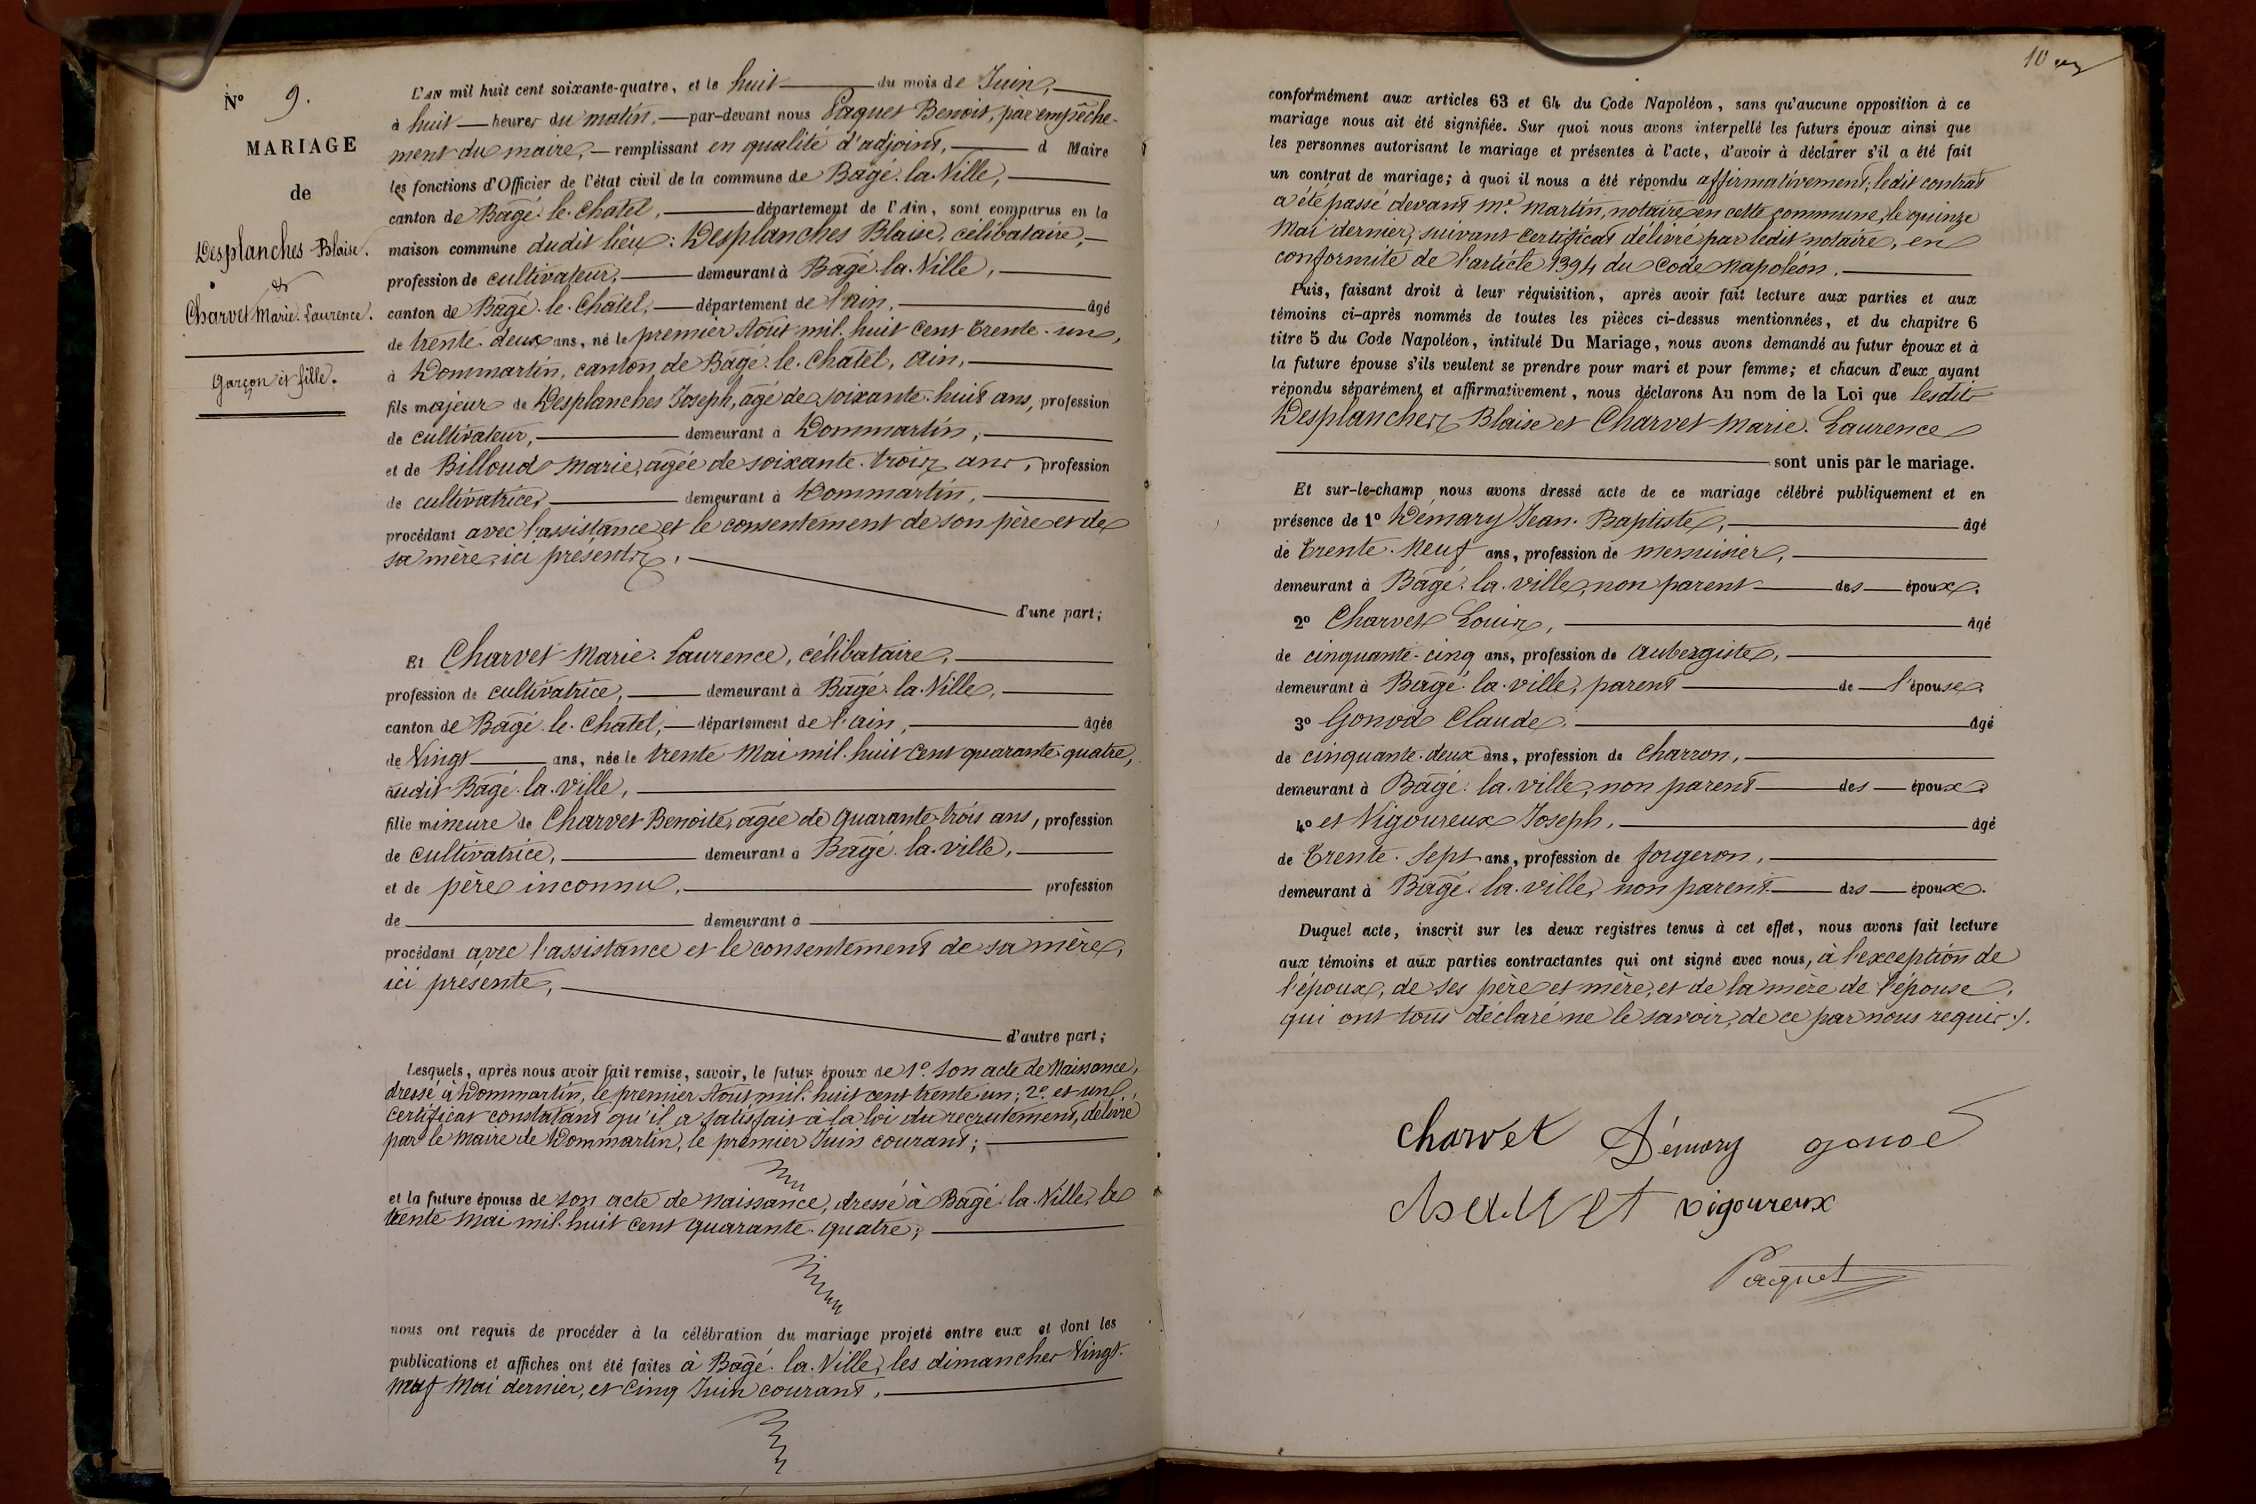 N° 9.
MARIAGE
de
Desplanches Blaise.
&
Charvet Marie-Laurence.
Garçon et fille.
L'AN mil huit cent soixante-quatre, et le huit du mois de Juin,
à huit heures du matin, par-devant nous Paquet Benoit, par empêche-
ment du maire, remplissant en qualité d'adjoint, d Maire
les fonctions d'Officier de l'état civil de la commune de Bâgé-la-Ville,
canton de Bâgé-le-Chatel, département de l'Ain, sont comparus en la
maison commune dudit lieu: Desplanches Blaise, célibataire,
profession de cultivateur, demeurant à Bâgé-la-Ville,
canton de Bâgé-le-Châtel, département de l'Ain, âgé
de trente-deux ans, né le premier Août mil-huit cent trente-un,
à Dommartin, canton de Bâgé-le-Chatel, Ain,
fils majeur de Desplanches Joseph, âgé de soixante-huit ans, profession
de cultivateur, demeurant à Dommartin,
et de Billoud Marie, agée de soixante-trois ans, profession
de cultivatrice, demeurant à Dommartin,
procédant avec l'assistance et le consentement de son père et de
sa mère, ici présents,
d'une part;
Et Charvet Marie-Laurence, célibataire,
profession de cultivatrice, demeurant à Bâgé-la-Ville,
canton de Bâgé-le-Chatel, département de l'ain, âgée
de Vingt ans, née le trente Mai mil-huit cent quarante-quatre,
audit Bâgé-la-Ville,
fille mineure de Charvet Benoite, agée de quarante-trois ans, profession
de cultivatrice, demeurant à Bâgé-la-ville,
et de père inconnu, profession
de demeurant à
procédant avec l'assistance et le consentement de sa mère,
ici présente,
d'autre part;
Lesquels, après nous avoir fait remise, savoir, le futur époux de 1° son acte de Naissance,
dressé à Dommartin, le premier Août mil-huit cent trente un; 2° et un
certificat constatant qu'il a satisfait à la loi du recrutement, délivré
par le Maire de Dommartin, le premier Juin courant;
et la future épouse de son acte de naissance, dressé à Bâgé-la-Ville, le
trente Mai mil-huit cent quarante-quatre;
nous ont requis de procéder à la célébration du mariage projeté entre eux et dont les
publications et affiches ont été faites à Bâgé-la-Ville, les dimanches Vingt-
neuf Mai dernier, et cinq Juin courant,
10
conformément aux articles 63 et 64 du Code Napoléon, sans qu'aucune opposition à ce
mariage nous ait été signifiée. Sur quoi nous avons interpellé les futurs époux ainsi que
les personnes autorisant le mariage et présentes à l'acte, d'avoir à déclarer s'il a été fait
un contrat de mariage; à quoi il nous a été répondu affirmativement; ledit contrat
a été passé devant Me. Martin, notaire en cette commune, le quinze
Mai dernier, suivant certificat délivré par ledit notaire, en
conformité de l'article 1394 du Code Napoléon.
Puis, faisant droit à leur réquisition, après avoir fait lecture aux parties et aux
témoins ci-après nommés de toutes les pièces ci-dessus mentionnées, et du chapitre 6
titre 5 du Code Napoléon, intitulé Du Mariage, nous avons demandé au futur époux et à
la future épouse s'ils veulent se prendre pour mari et pour femme; et chacun d'eux ayant
répondu séparément et affirmativement, nous déclarons Au nom de la Loi que lesdits
Desplanches Blaise et Charvet Marie-Laurence
sont unis par le mariage.
Et sur-le-champ nous avons dressé acte de ce mariage célébré publiquement et en
présence de 1° Démary Jean-Baptiste, âgé
de trente-neuf ans, profession de menuisier,
demeurant à Bâgé-la-ville, non parent des époux.
2° Charvet Louis, âgé
de cinquante-cinq ans, profession de Aubergiste,
demeurant à Bâgé-la-ville, parent de l'épouse.
3° Gonod Claude, âgé
de cinquante-deux ans, profession de charron,
demeurant à Bâgé-la-ville, non parent des époux.
4° et Vigoureux Joseph, âgé
de trente-sept ans, profession de forgeron,
demeurant à Bâgé-la-ville, non parent des époux.
Duquel acte, inscrit sur les deux registres tenus à cet effet, nous avons fait lecture
aux témoins et aux parties contractantes qui ont signé avec nous, à l'exception de
l'époux, de ses père et mère, et de la mère de l'épouse,
qui ont tous déclaré ne le savoir, de ce par nous requis./.
Charvet Démary gonod
Charvet vigoureux
Paquet